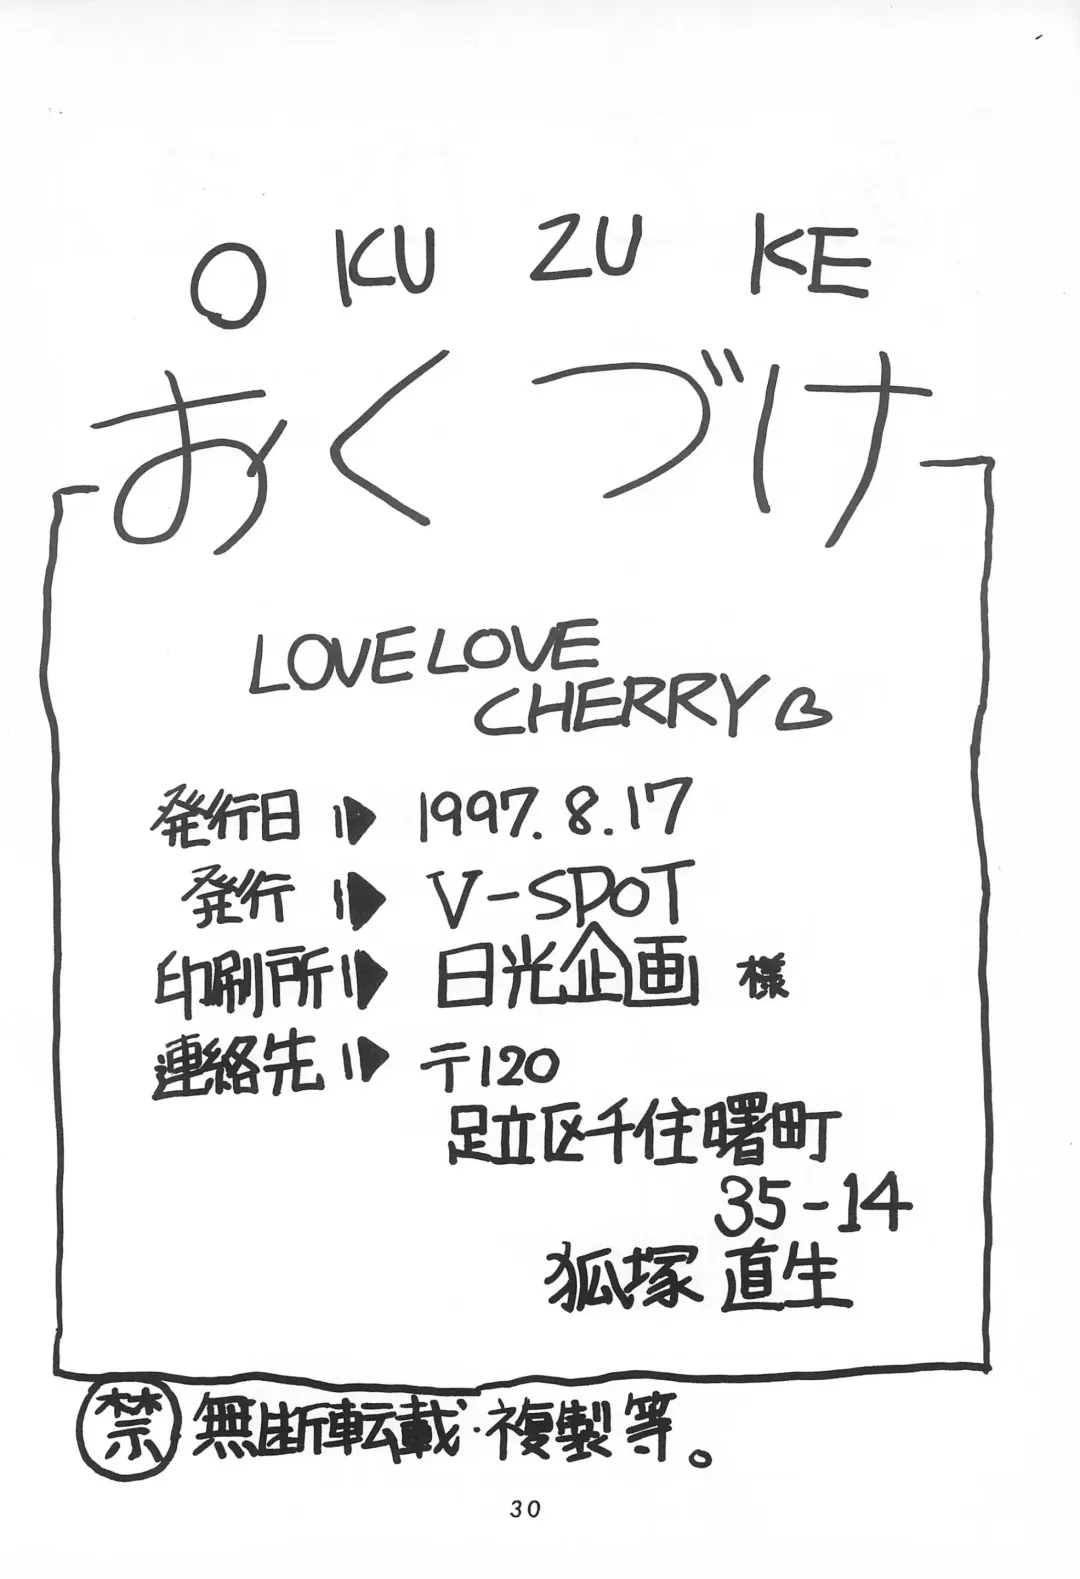 O KU ZU KE
おくづけ
LOVE LOVE
CHERRY
発行日 1997.8.17
発行 V-SPOT
印刷所 日光企画 様
連絡先 〒120
足立区千住曙町
35-14
狐塚 直生
禁 無断転載・複製等。
30